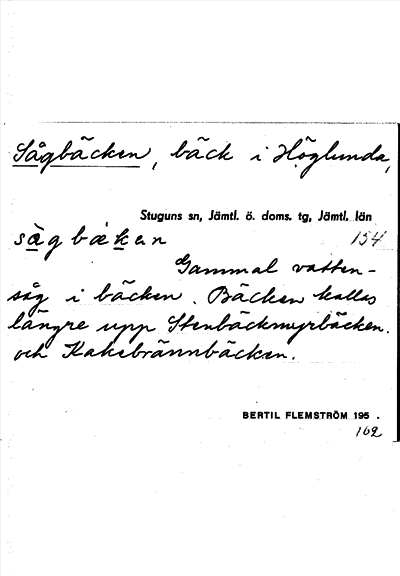 Sågbäcken, bäck i Höglunda,
Stuguns sn, Jämtl. ö. doms. tg, Jämtl. län
sàgbæken 154
Gammal vatten-
såg i bäcken. Bäcken kallas
längre upp Stenbäckmyrbäcken.
och Kakebrännbäcken.
BERTIL FLEMSTRÖM 195 .
162